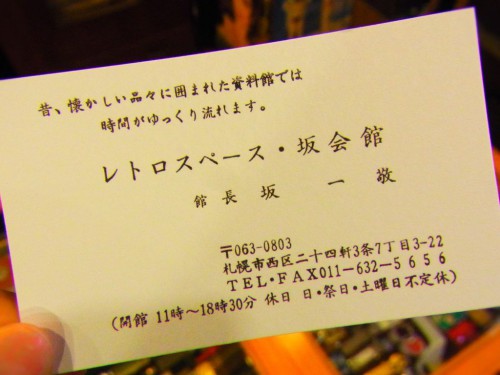 昔、懐かしい品々に囲まれた資料館では
時間がゆっくり流れます。
レトロスペース・坂会館
館長 坂 一敬
〒063-0803
札幌市西区二十四軒3条7丁目3-22
TEL・FAX011-632-5656
(開館 11時〜18時30分 休日 日・祭日・土曜日不定休)